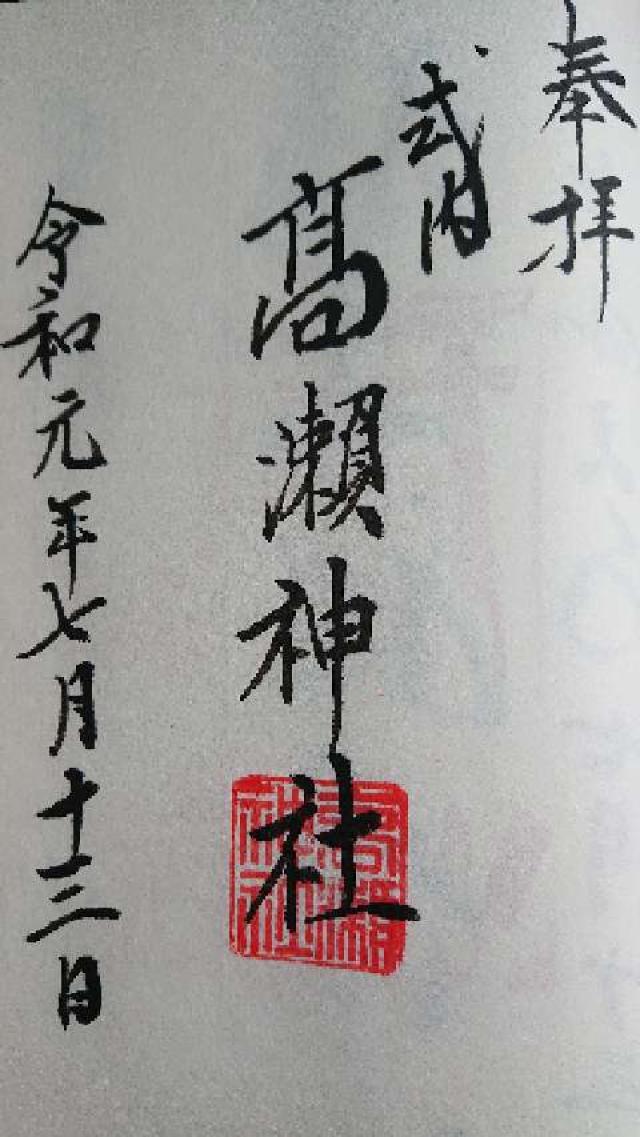 奉拝
式内
髙瀬神社
髙瀬神社
令和元年七月十三日